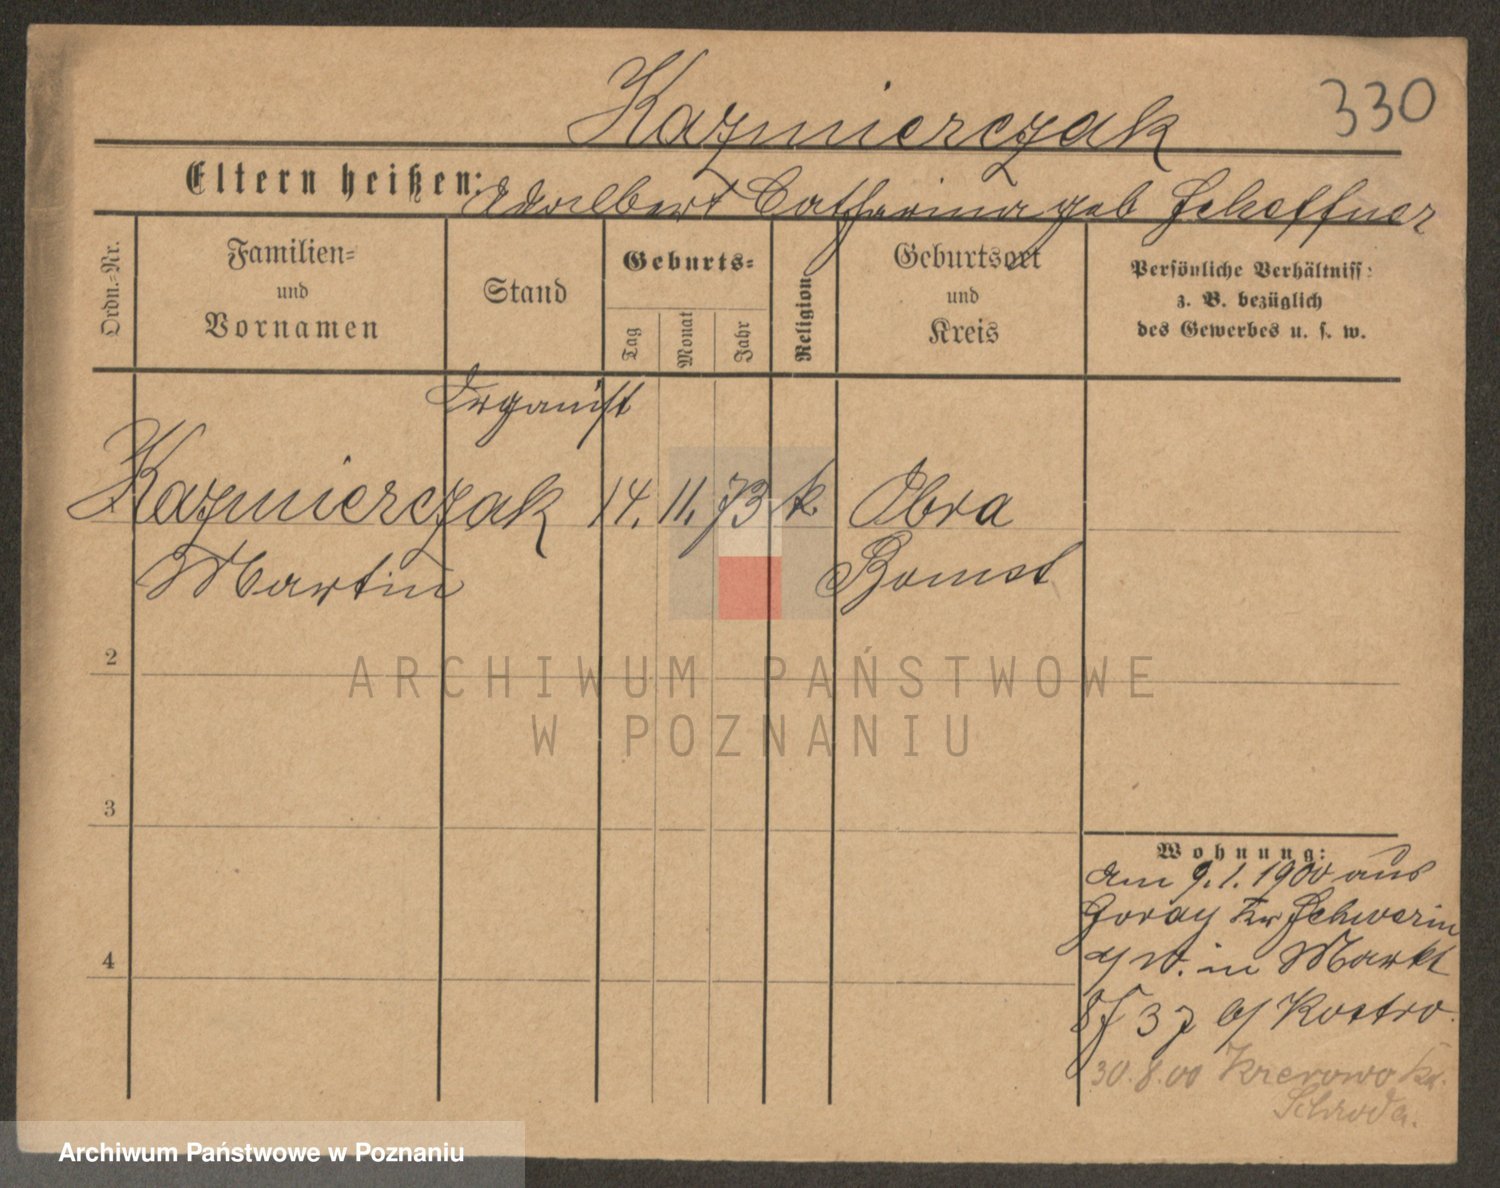 330
Kazmierczak
Eltern heißen: Adalbert Catharina geb Scheffner
Ordn.-Nr.
Familien=
und
Vornamen
Stand
Geburts=
Tag
Monat
Jahr
Religion
Geburtsort
und
Kreis
Persönliche Verhältniss:
z. B. bezüglich
des Gewerbes u. s. w.
Organist
Kazmierczak 14. 11. 73 k. Obra
Martin Bomst
2
3
4
Wohnung:
am 9. 1. 1900 aus
Goray Kr Schwerin
a/W. in Markt
37 b/ Kostro.
30.8.00 Krerowo Kr.
Schroda.
ARCHIWUM PAŃSTWOWE
W POZNANIU
Archiwum Państwowe w Poznaniu